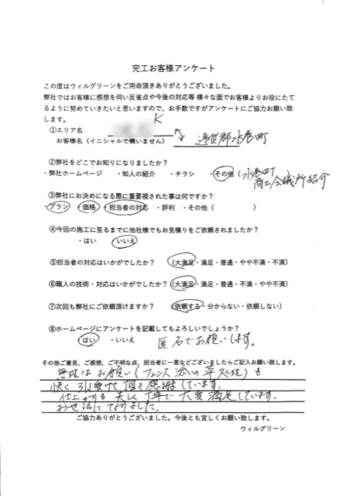 完工お客様アンケート
この度はウィルグリーンをご用命頂きありがとうございました。
弊社ではお客様に感想を伺い反省点や今後の対応等 様々な面でお客様よりお役にたて
るように努めていきたいと思いますので、お手数ですがアンケートにご協力お願い致
します。
①エリア名
K
お客様名（イニシャルで構いません） 遠賀郡水巻町
②弊社をどこでお知りになりましたか？
・弊社ホームページ ・知人の紹介 ・チラシ ・その他（水巻町
商工会議所紹介
③弊社にお決めになる際に重要視された事は何ですか？
・プラン ・価格 ・担当者の対応 ・評判 ・その他（ ）
④今回の施工に至るまでに他社様でもお見積りをご依頼されましたか？
・はい ・いいえ
⑤担当者の対応はいかがでしたか？ （大満足・満足・普通・やや不満・不満）
⑥職人の技術・対応はいかがでしたか？ （大満足・満足・普通・やや不満・不満）
⑦次回も弊社にご依頼頂けますか？ （依頼する・分からない・依頼しない）
⑧ホームページにアンケートを記載してもよろしいでしょうか？
・はい ・いいえ 匿名でお願いします。
その他ご意見、ご感想、ご不明な点、担当者に一言などございましたらご記入お願い致します。
無理なお願い（フェンス添いの草処理）も
快く引き受けて頂き感謝しています。
仕上がりも美しく丁寧で大変満足しています。
お世話になりました。
ご協力ありがとうございました。今後とも宜しくお願い致します。
ウィルグリーン